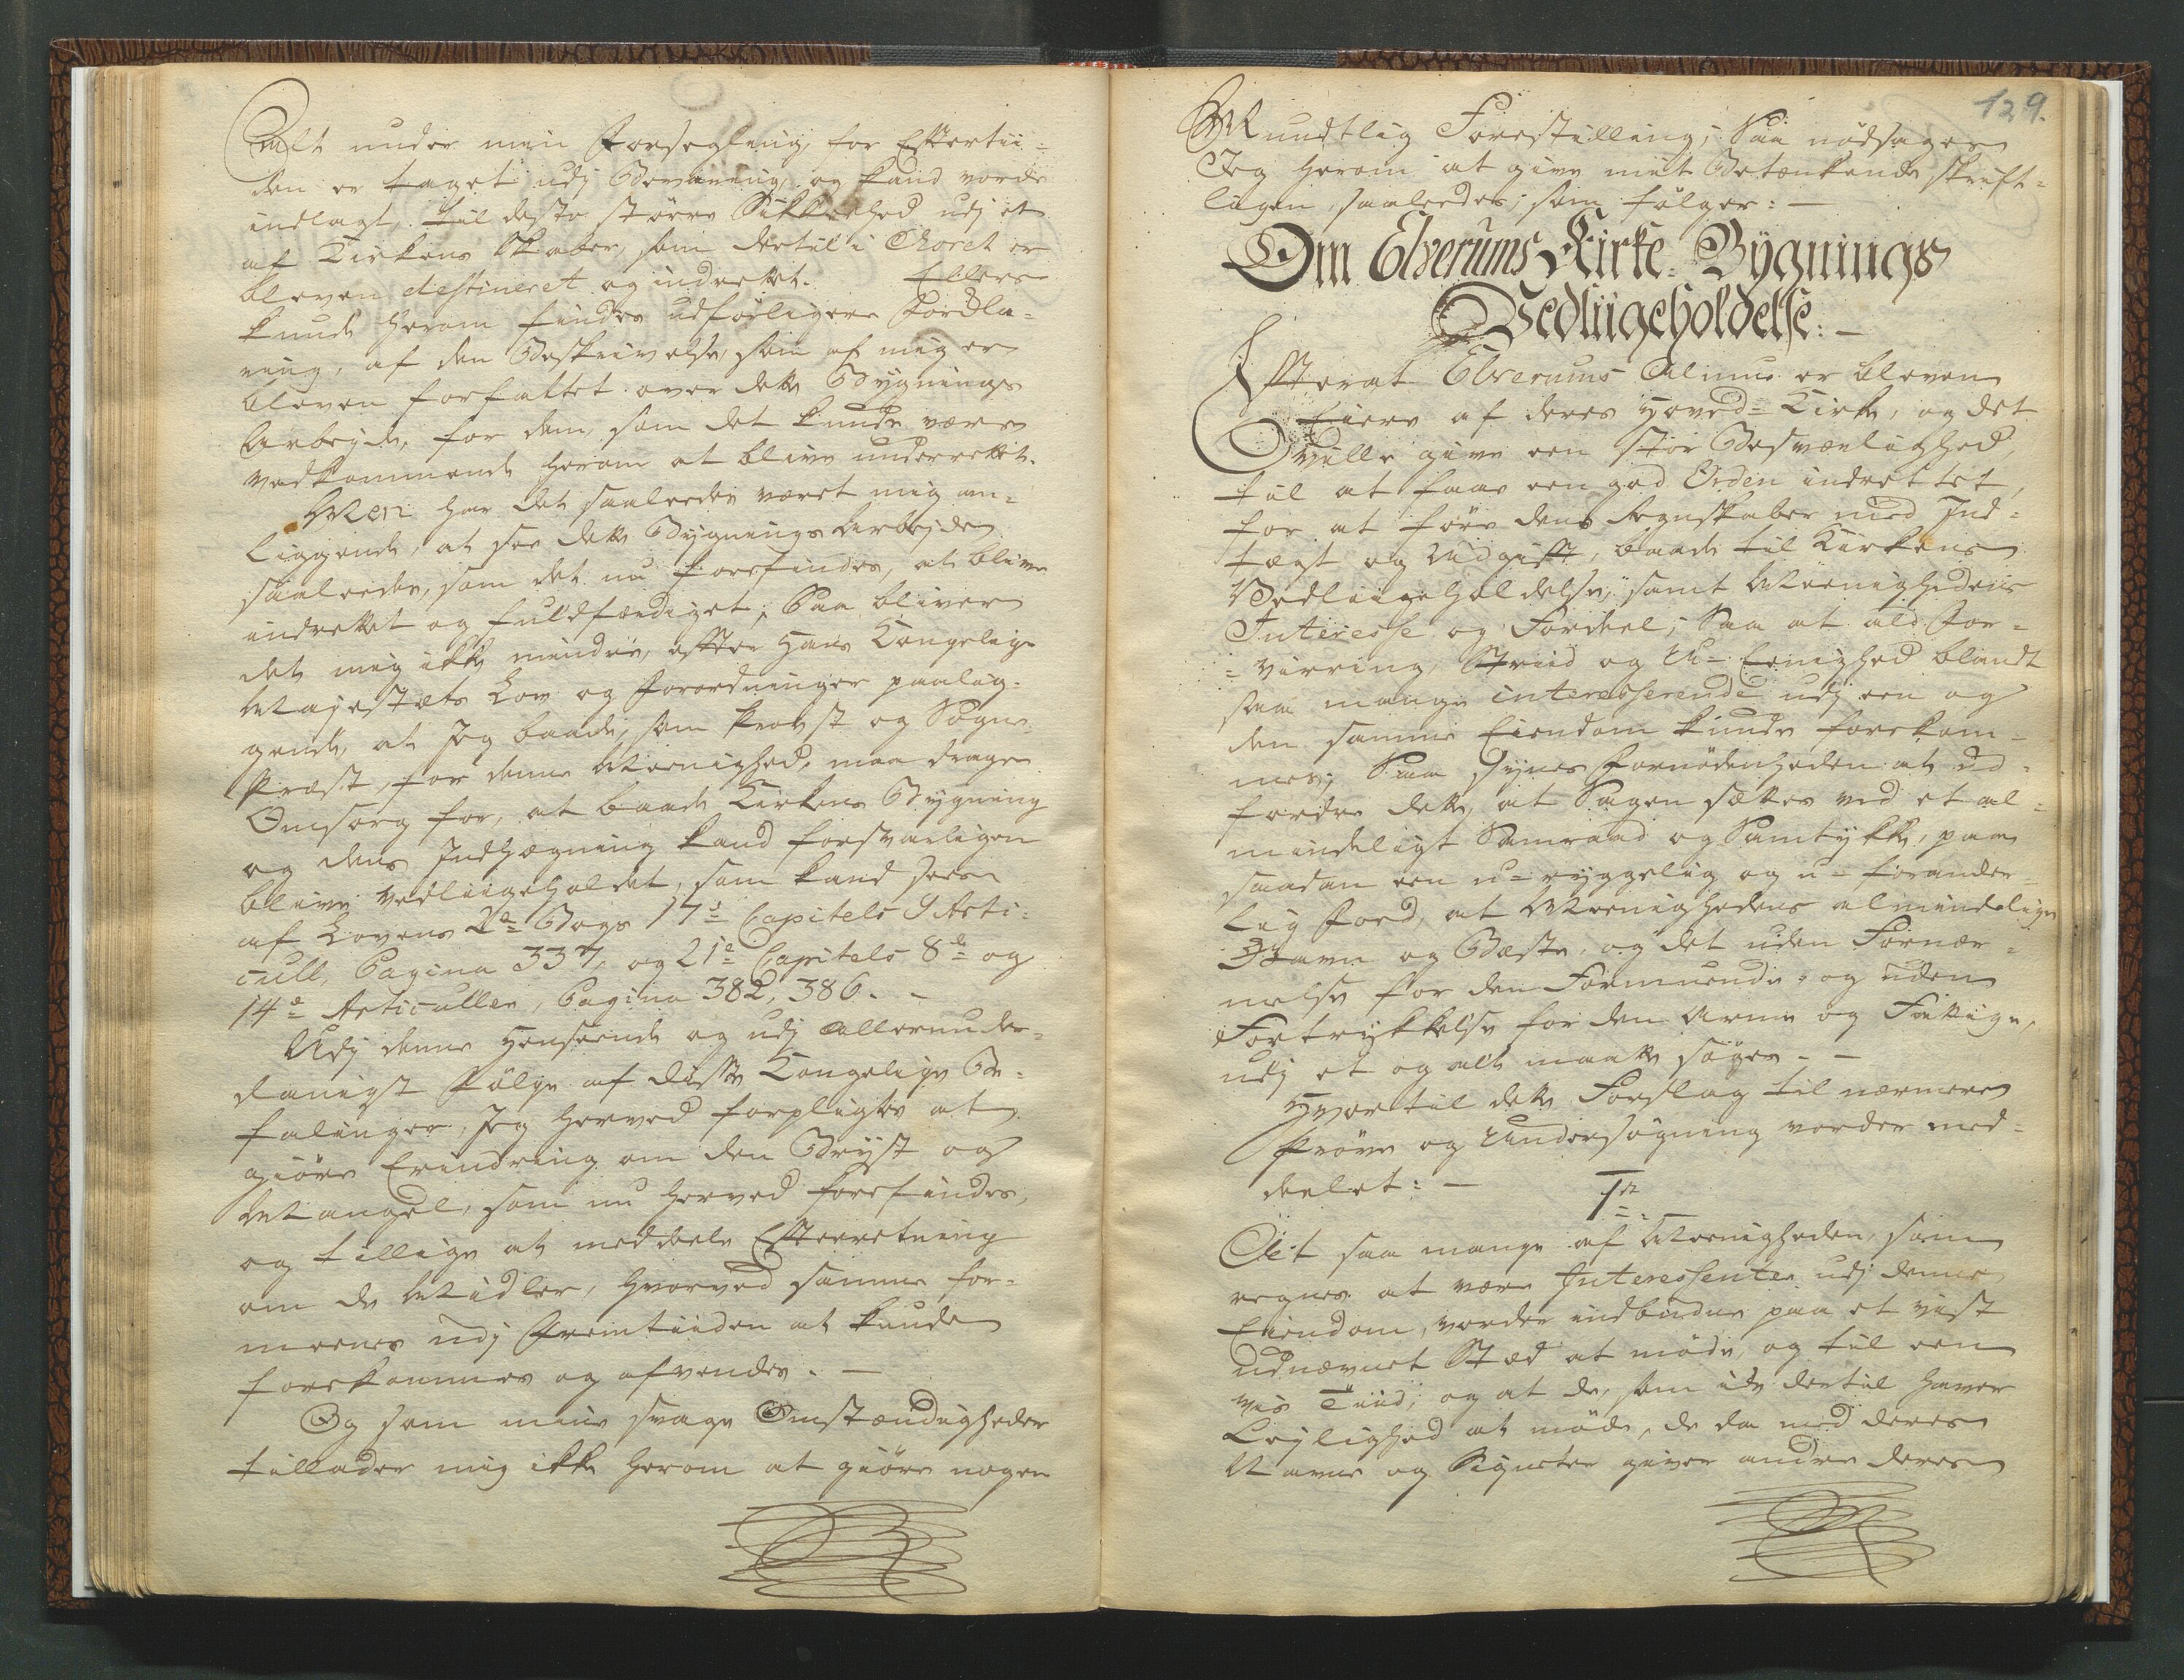 Alt under min Forseghling, for Effertii=
den er taget udj Bevaring, og kand vorde
indlagt, til desto större Sikkerhed udj et
af Kirkens Skaber, som dertil i Choret er
bleven destineret og indrettet. Ellers
kunde herom findes udförligere Forkla=
ring, af den Beskrivelse, som af mig er
bleven forfattet over dette Bygnings
Arbeyde, for dem, som det kunde være
vedkommende herom at blive underrettet.
Men har det saaledes været mig an=
liggende, at see dette Bygnings Arbejde
saaledes, som det nu forefindes, at blive
indrettet og fuldfærdiget; Saa bliver
det mig ikke mindre, efter Hans Kongelige
Majestæts Lov og Forordninger paalig=
gende, at Jeg baade, som Provst og Sogne
Præst, for denne Meenighed, maa drage
Omsorg for, at baade Kirkens Bygning
og dens Indhægning kand forsvarligen
blive vedliigeholdet, som kand sees
af Lovens 2de Bogs 17de Capitels 9 Arti=
cull, Pagina 337, og 21de Capitels 8de og
14de Articuller, Pagina 382, 386. -
Udj denne Henseende og udj allerunder=
danigst Fölge af disse Kongelige Be=
falinger, Jeg herved forpligtes at
giöre Erindring om den Bröst og
Mangel, som nu herved forefindes,
og tillige at meddeele Efterretning
om de Midler, hvorved samme for=
meenes udj Fremtiiden at kunde
forekommes og afvendes. -
Og som mine svage Omstændigheder
tillader mig ikke herom at giöre nogen
129.
Mundtlig Forestilling; Saa nödsages
Jeg herom at give mit Betænkende skrift=
ligen, saaledes, som fölger: -
Om Elverums Kirke-Bygnings
Vedliigeholdelse: -
Efterat Elverums Almue er bleven
Eiere af deres Hoved-Kirke, og det
vilde give een stor Besværlighed
til at faae een god Orden indrettet,
for at före dens Regnskaber med Ind=
tægt og Udgift, baade til Kirkens
Vedliigeholdelse, samt Meenighedens
Interesse og Fordeel; Saa at ald For=
=virring, Striid og U-Eenighed blandt
saa mange interesserende udj een og
den samme Eiendom kunde forekom=
mes; Saa synes Fornödenheden at ud=
fordre dette, at Sagen sættes ved et al=
mindeligt Samraad og Samtykke, paa
saadan een u-ryggelig og u-forander=
lig Foed, at Meenighedens almindelige
Gavn og Bæste, og det uden Fornær=
melse for den Formuende, og uden
Fortrykkelse for den Arme og Fattige,
udj et og alt maatte söges. -
Hvortil dette Forslag til nærmere
Pröve og Undersögning vorder med=
deelet: -
1te
At saa mange af Meenigheden, som
regnes at være Interessenter udj denne
Eiendom, vorder indbudne paa et vist
udnævnet Stæd at möde, og til een
vis Tiid; og at de, som icke dertil haver
Leylighed at möde, de da med deres
Navne og Signeter giver andre deres